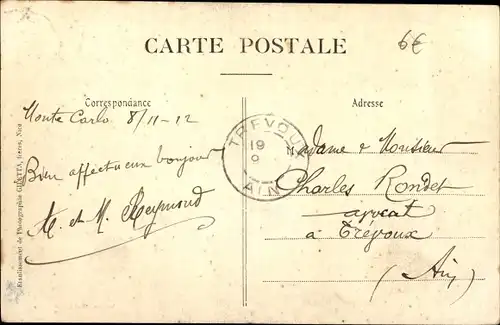 CARTE POSTALE
6€
Correspondance
Adresse
Monte Carlo 8/11-12
Bien affectueux bonjour
M. et M. Reymond
TREVOUX
19
9
AIN
Madame & Monsieur
Charles Rondet
avocat
à Trévoux
(Ain)
Etablissement de Photographie GILETTA, frères, Nice